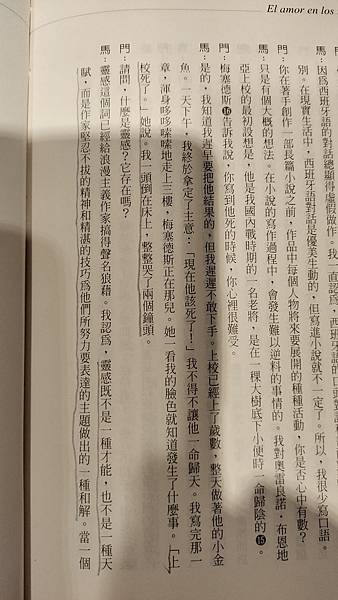 El amor en los
馬：因為西班牙語的對話總顯得虛假做作。我一直認為，西班牙語的口頭對話
別。在現實生活中，西班牙語對話是優美生動的，但寫進小說就不一定了。所以，我很少寫口語。
門：你在著手創作一部長篇小說之前，作品中每個人物將來要展開的種種活動，你是否心中有數？
馬：只是有個大概的想法。在小說的寫作過程中，會發生難以逆料的事情的。我對奧雷良諾・布恩地
亞上校的最初設想是，他是我國內戰時期的一名老將，是在一棵大樹底下小便時一命歸陰的⑮。
門：梅塞德斯⑯告訴我說，你寫到他死的時候，你心裡很難受。
馬：是的，我知道我遲早要把他結果的，但我遲遲不敢下手。上校已經上了歲數，整天做著他的小金
魚。一天下午，我終於拿定了主意：「現在他該死了！」我不得不讓他一命歸天。我寫完那一
章，渾身哆哆嗦嗦地走上三樓，梅塞德斯正在那兒。她一看我的臉色就知道發生了什麼事。「上
校死了。」她說。我一頭倒在床上，整整哭了兩個鐘頭。
門：請問，什麼是靈感？它存在嗎？
馬：靈感這個詞已經給浪漫主義作家搞得聲名狼藉。我認為，靈感既不是一種才能，也不是一種天
賦，而是作家堅忍不拔的精神和精湛的技巧為他們所努力要表達的主題做出的一種和解。當一個